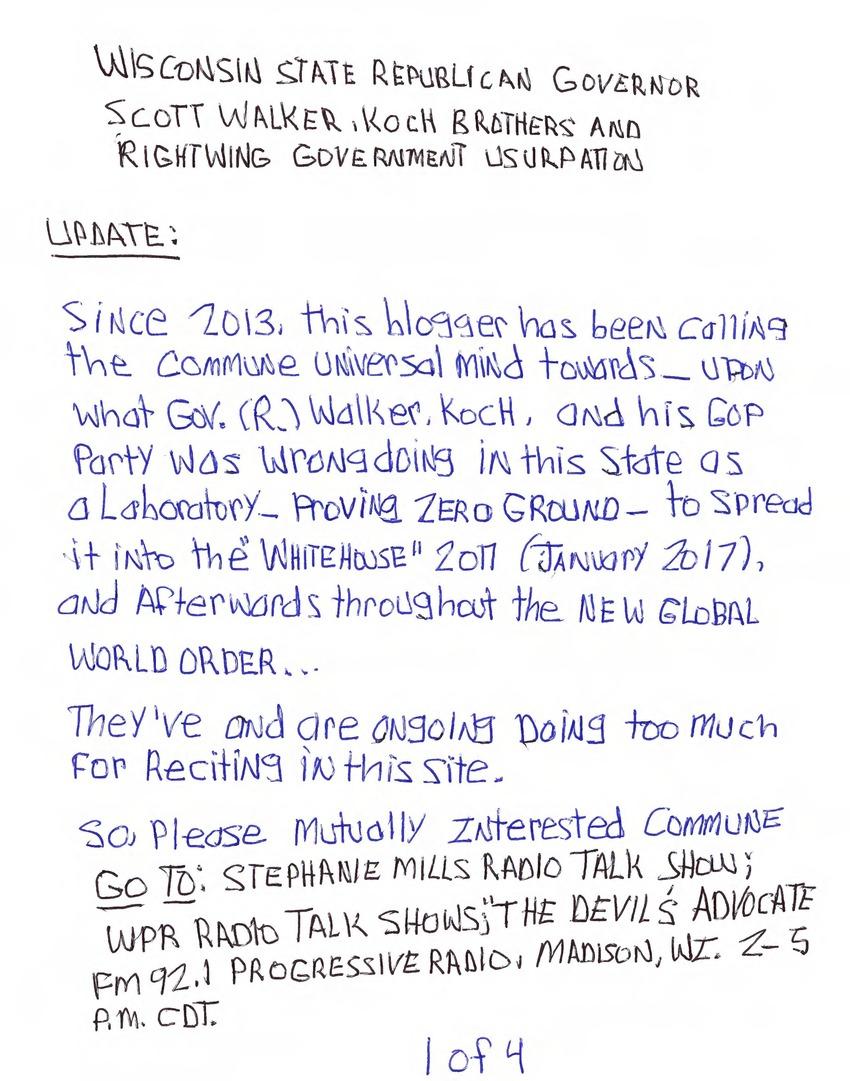 WISCONSIN STATE REPUBLICAN GOVERNOR
SCOTT WALKER, KOCH BROTHERS AND
RIGHTWING GOVERNMENT USURPATION
UPDATE:
SiNce 2013, this blogger has been calling
the commune universal mind towards — UPON
what Gov. (R.) Walker, KocH, and his GOP
Party was wrongdoing in this State as
a Laboratory — Proving ZERO GROUND — to spread
it into the "WHITEHOUSE" 2017 (JANUARY 2017),
and Afterwards throughout the NEW GLOBAL
WORLD ORDER...
They've and are ongoing Doing too much
For Reciting in this site.
So, Please Mutually Interested COMMUNE
GO TO: STEPHANIE MILLS RADIO TALK SHOW;
WPR RADIO TALK SHOWS; "THE DEVIL'S ADVOCATE
FM 92.1 PROGRESSIVE RADIO, MADISON, WI. 2-5
P.M. CDT.
1 of 4